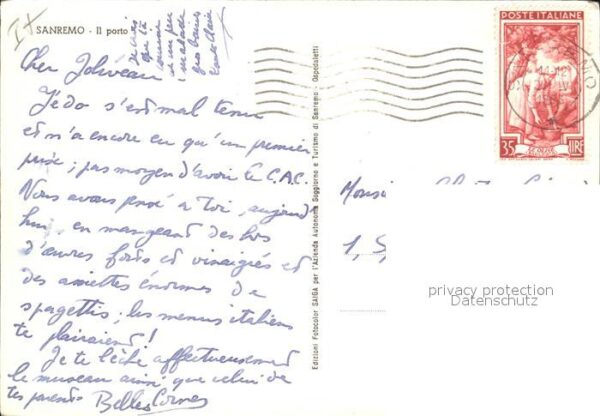 SANREMO - Il porto
Cher Joliveau
Jédo s'est mal tenu
et n'a encore eu qu'un premier
prix; pas moyen d'avoir le C.A.C.
Vous avons pensé à toi, aujourd'
hui, en mangeant des hors
d'œuvres forts et vinaigrés et
des assiettes énormes de
spagettis; les menus italiens
te plairaient!
Je te lèche affectueusement
le museau ainsi que celui de
tes parents Belles Cornes
Edizioni Fotocolor SAIGA per l'Azienda Autonoma Soggiorno e Turismo di Sanremo - Ospedaletti
POSTE ITALIANE
35 LIRE
Monsi
1, S
privacy protection
Datenschutz